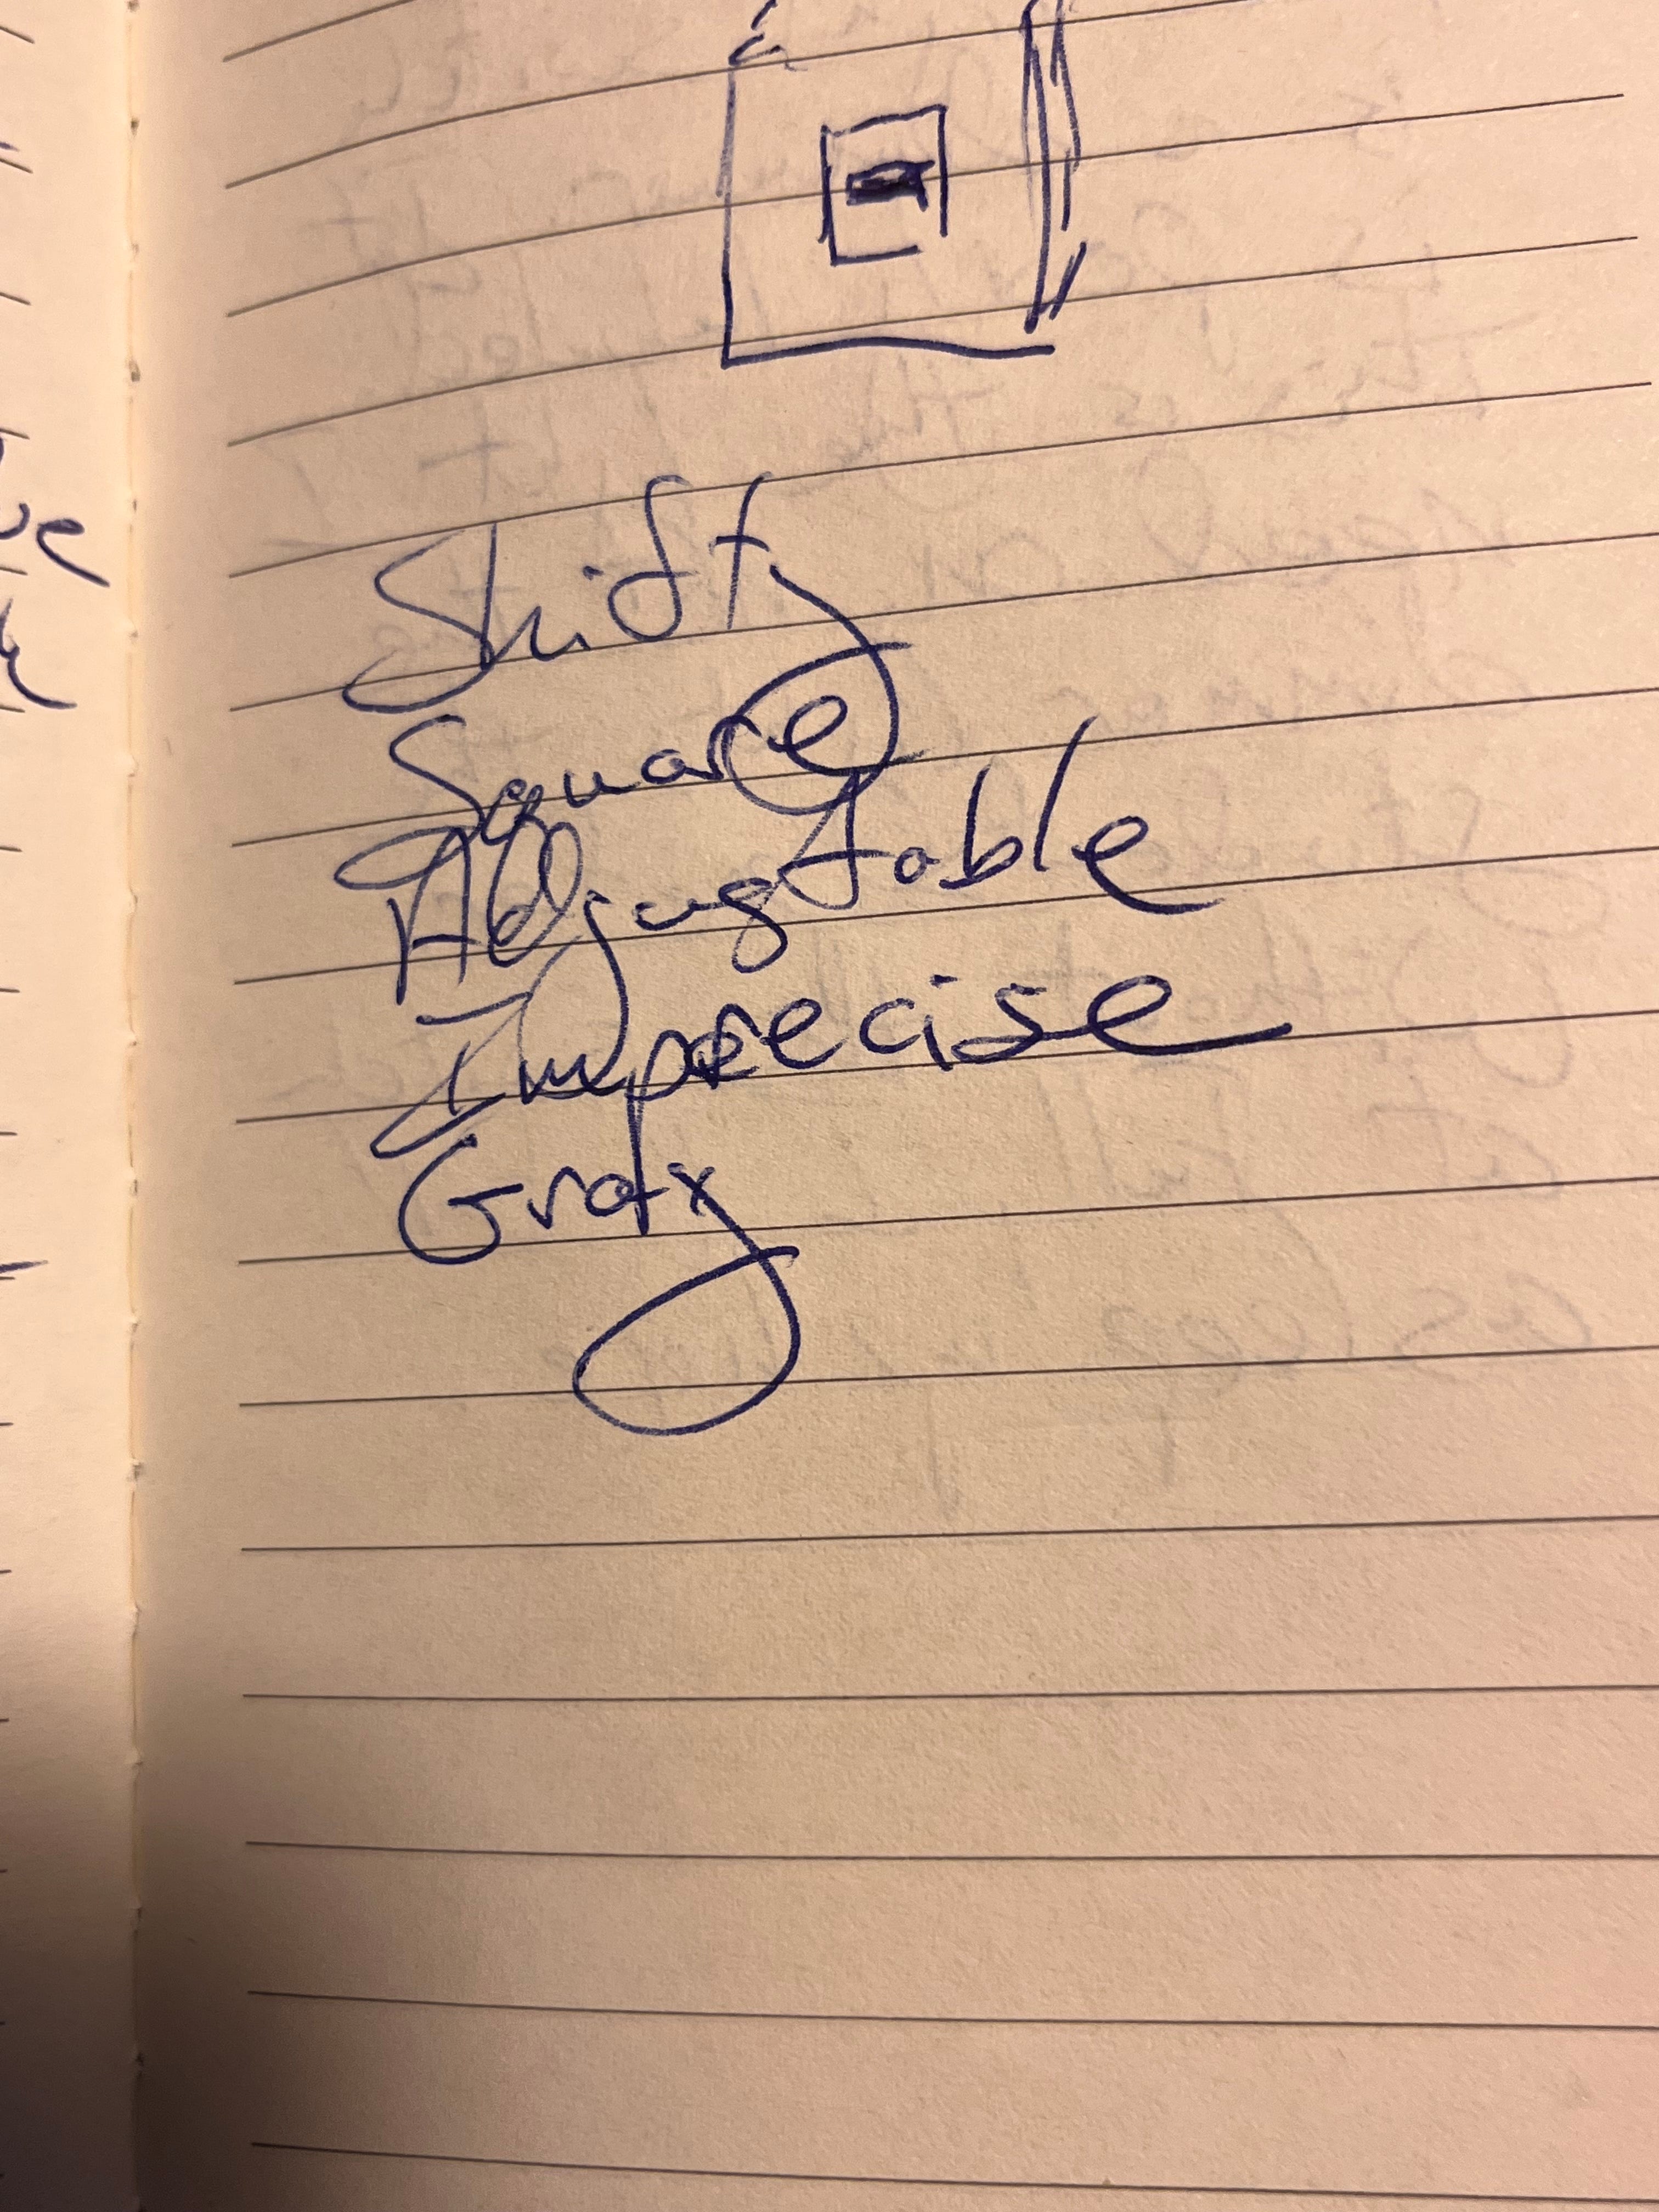 Shifty
Square
Adjustable
Imprecise
Gray